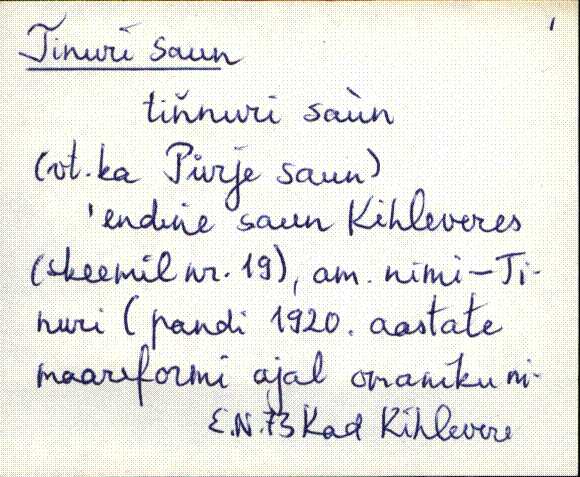 1
Tinuri saun
tiňnuri saùn
(vt. ka Pürje saun)
'endine saun Kihleveres
(skeemil nr. 19), am. nimi – Ti-
nuri (pandi 1920. aastate
maareformi ajal omaniku ni-
E.N. 73 Kad Kihlevere